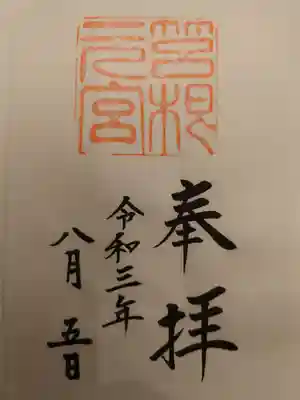 筥根
元宮
奉拝
令和三年
八月五日